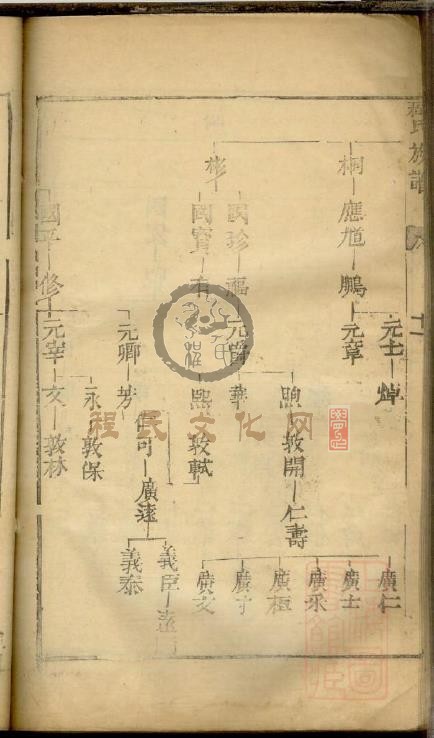 程氏族譜
十一
桐 應馗 鵬 元士 焯
元章
彬 國珍
國寶 有
元爵 華
煦 敦開 仁壽
廣仁
廣士
廣采
廣極
廣才
廣文
熙 敦軾
國平 修 元卿 芳 仁可 廣遠 義臣
義泰
元宰 文 敦林
永 敦保
程氏文化网